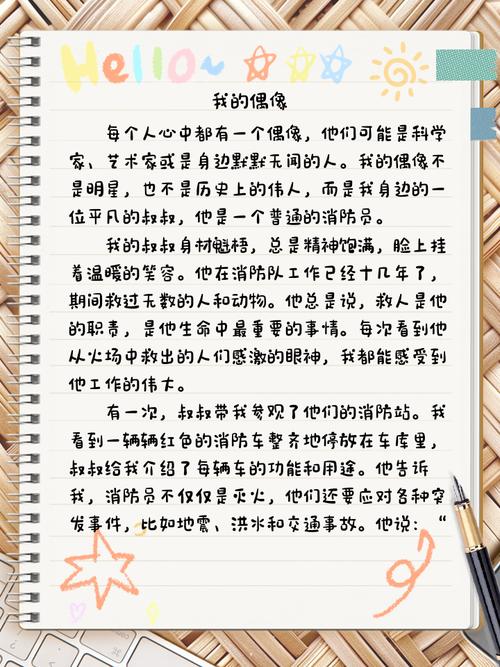 Hello~
我的偶像
每个人心中都有一个偶像，他们可能是科学
家、艺术家或是身边默默无闻的人。我的偶像不
是明星，也不是历史上的伟人，而是我身边的一
位平凡的叔叔，他是一个普通的消防员。
我的叔叔身材魁梧，总是精神饱满，脸上挂
着温暖的笑容。他在消防队工作已经十几年了，
期间救过无数的人和动物。他总是说，救人是他
的职责，是他生命中最重要的事情。每次看到他
从火场中救出的人们感激的眼神，我都能感受到
他工作的伟大。
有一次，叔叔带我参观了他们的消防站。我
看到一辆辆红色的消防车整齐地停放在车库里，
叔叔给我介绍了每辆车的功能和用途。他告诉
我，消防员不仅仅是灭火，他们还要应对各种突
发事件，比如地震、洪水和交通事故。他说：“